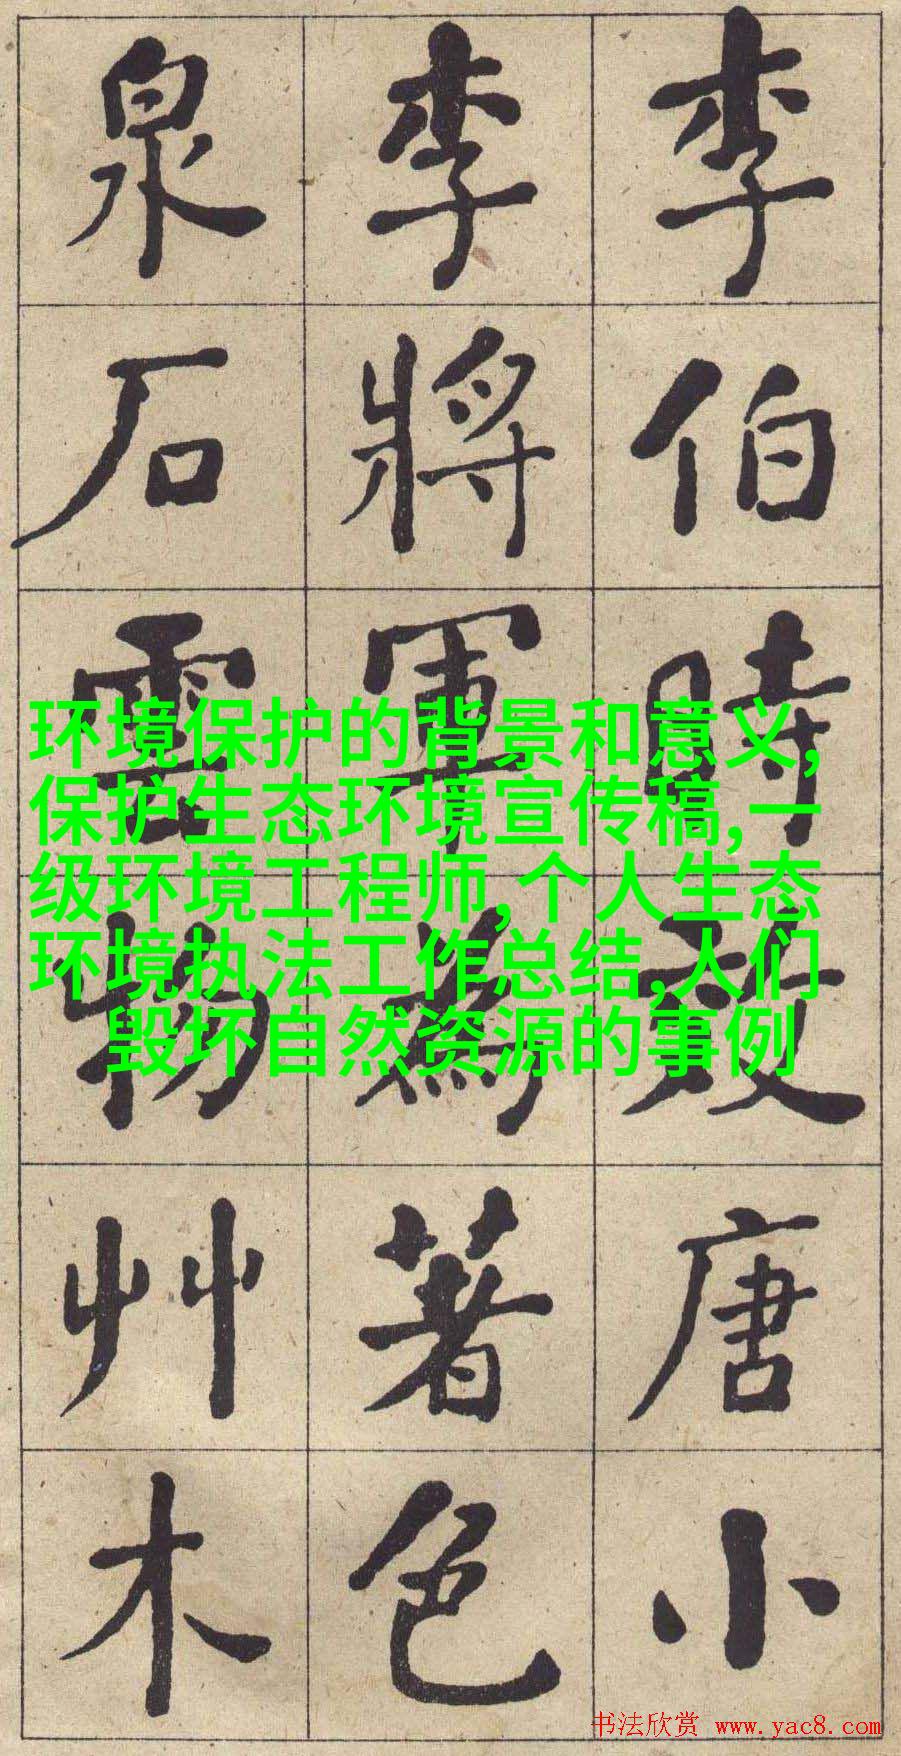 李伯時效唐小
李將軍為著色
泉石雲物艸木
环境保护的背景和意义,
保护生态环境宣传稿,一
级环境工程师,个人生态
环境执法工作总结,人们
毁坏自然资源的事例
书法欣赏 www.yac8.com